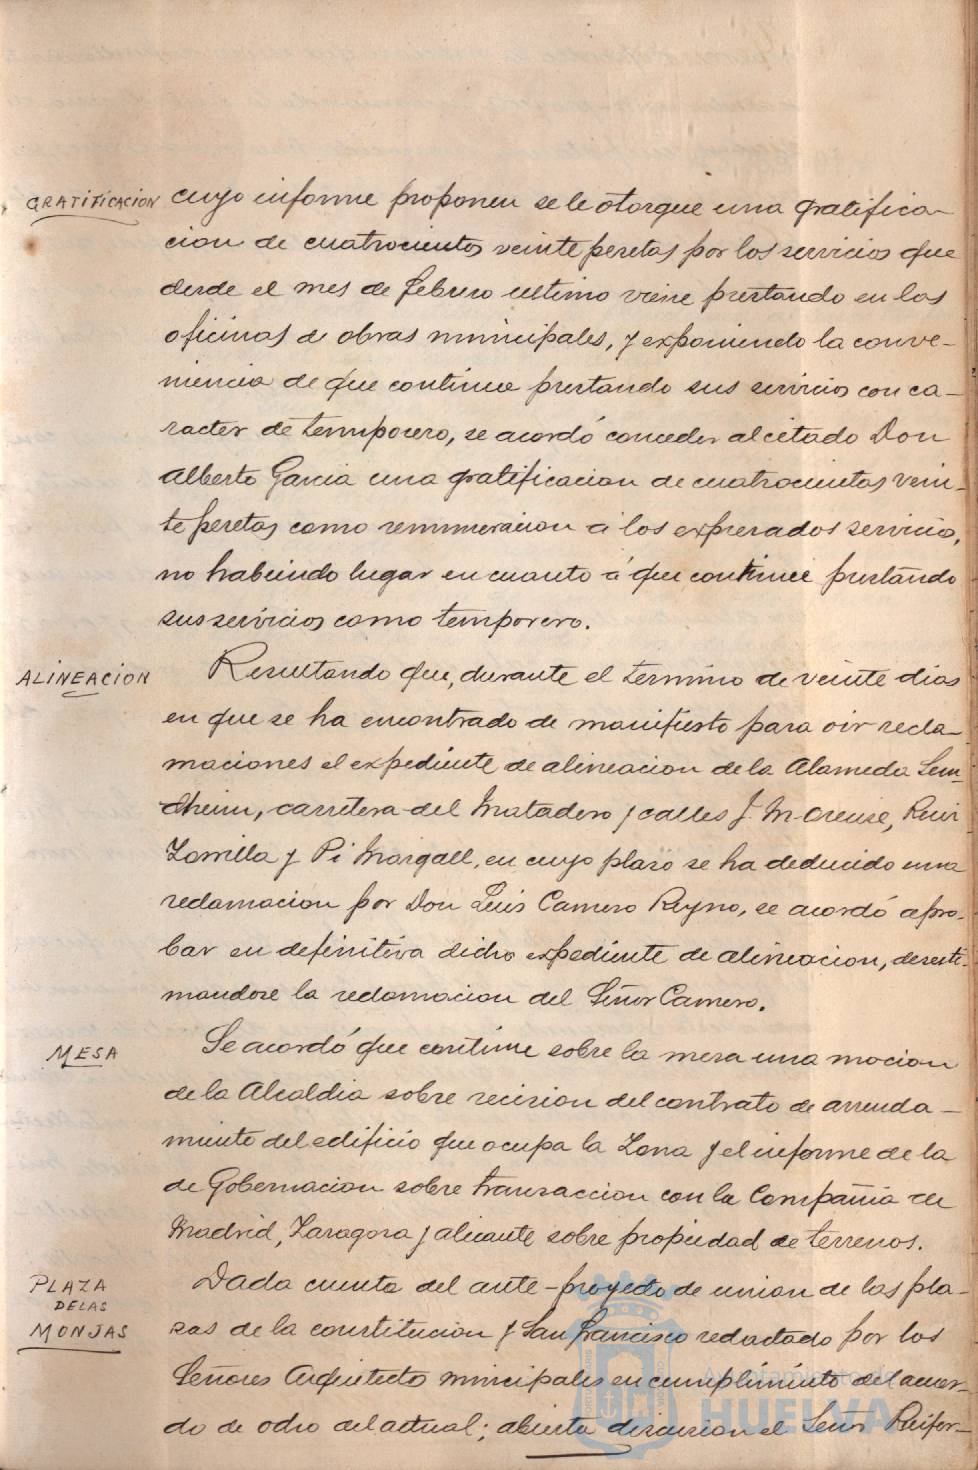 GRATIFICACION
cuyo informe proponen se le otorgue una gratifica-
cion de cuatrocientas veinte pesetas por los servicios que
desde el mes de febrero ultimo viene prestando en las
oficinas de obras municipales, y exponiendo la conve-
niencia de que continue prestando sus servicios con ca-
racter de temporero, se acordó conceder al citado Don
Alberto Garcia una gratificacion de cuatrocientas vein-
te pesetas como remuneracion á los expresados servicios,
no habiendo lugar en cuanto á que continue prestando
sus servicios como temporero.
ALINEACION
Resultando que, durante el termino de veinte dias
en que se ha encontrado de manifiesto para oir recla-
maciones el expediente de alineacion de la Alameda Sun-
dheim, carretera del Matadero y calles J. M. Orense, Ruiz
Zorrilla y Pi Margall, en cuyo plazo se ha deducido una
reclamacion por Don Luis Camero Reyno, se acordó apro-
bar en definitiva dicho expediente de alineacion, desesti-
mandose la reclamacion del Señor Camero.
MESA
Se acordó que continue sobre la mesa una mocion
de la Alcaldia sobre recision del contrato de arrenda-
miento del edificio que ocupa la Zona y el informe de la
de Gobernacion sobre transaccion con la Compañia de
Madrid, Zaragoza y alicante sobre propiedad de terrenos.
PLAZA
DE LAS
MONJAS
Dada cuenta del ante-proyecto de union de las pla-
zas de la constitucion y San francisco redactado por los
Señores Arquitectos municipales en cumplimiento del acuer-
do de ocho del actual; abierta discusion el Señor
Ayuntamiento de
HUELVA